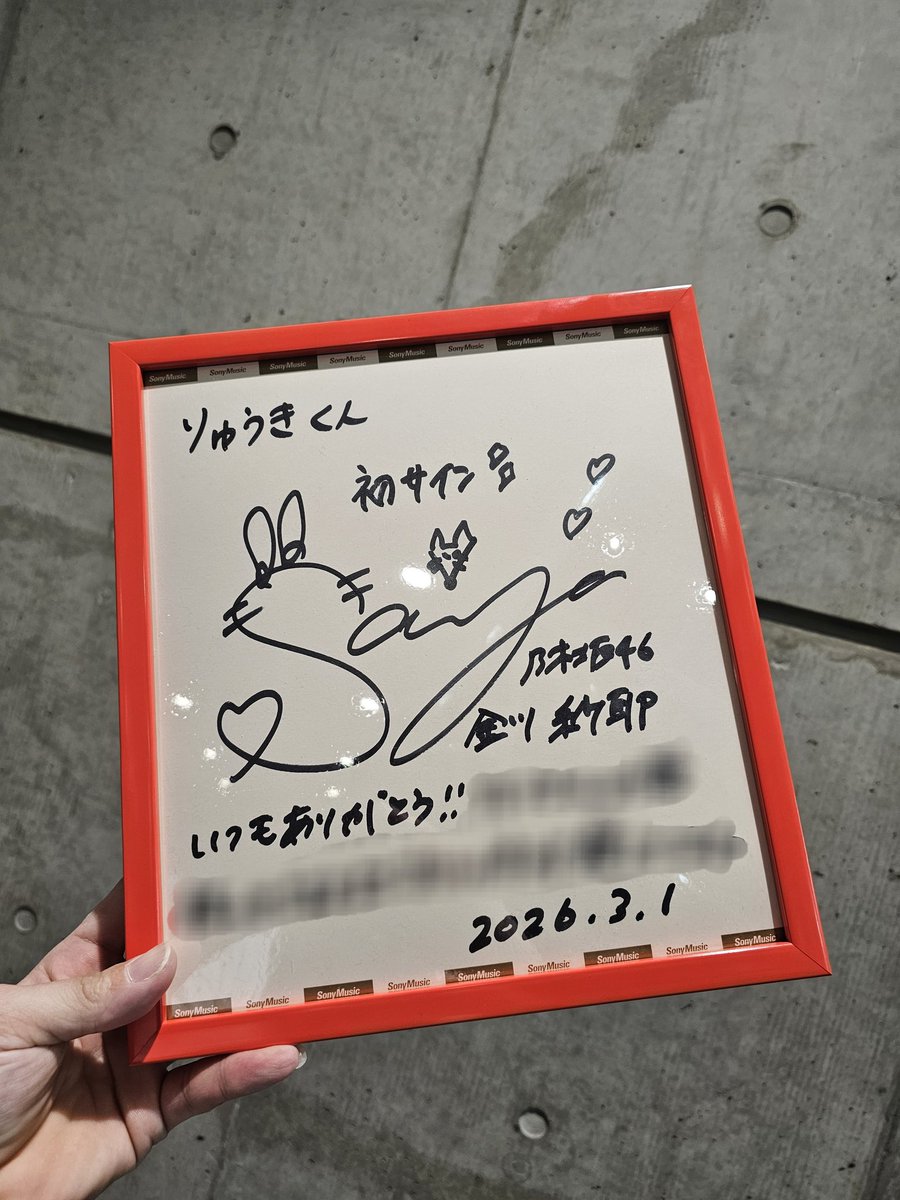 SonyMusic SonyMusic SonyMusic SonyMusic SonyMusic SonyMusic SonyMusic SonyMusic SonyMusic
りゅうきくん
初サイン
Saya
乃木坂46
金川 紗耶
いつもありがとう!!
2026.3.1
SonyMusic SonyMusic SonyMusic SonyMusic SonyMusic SonyMusic SonyMusic SonyMusic SonyMusic